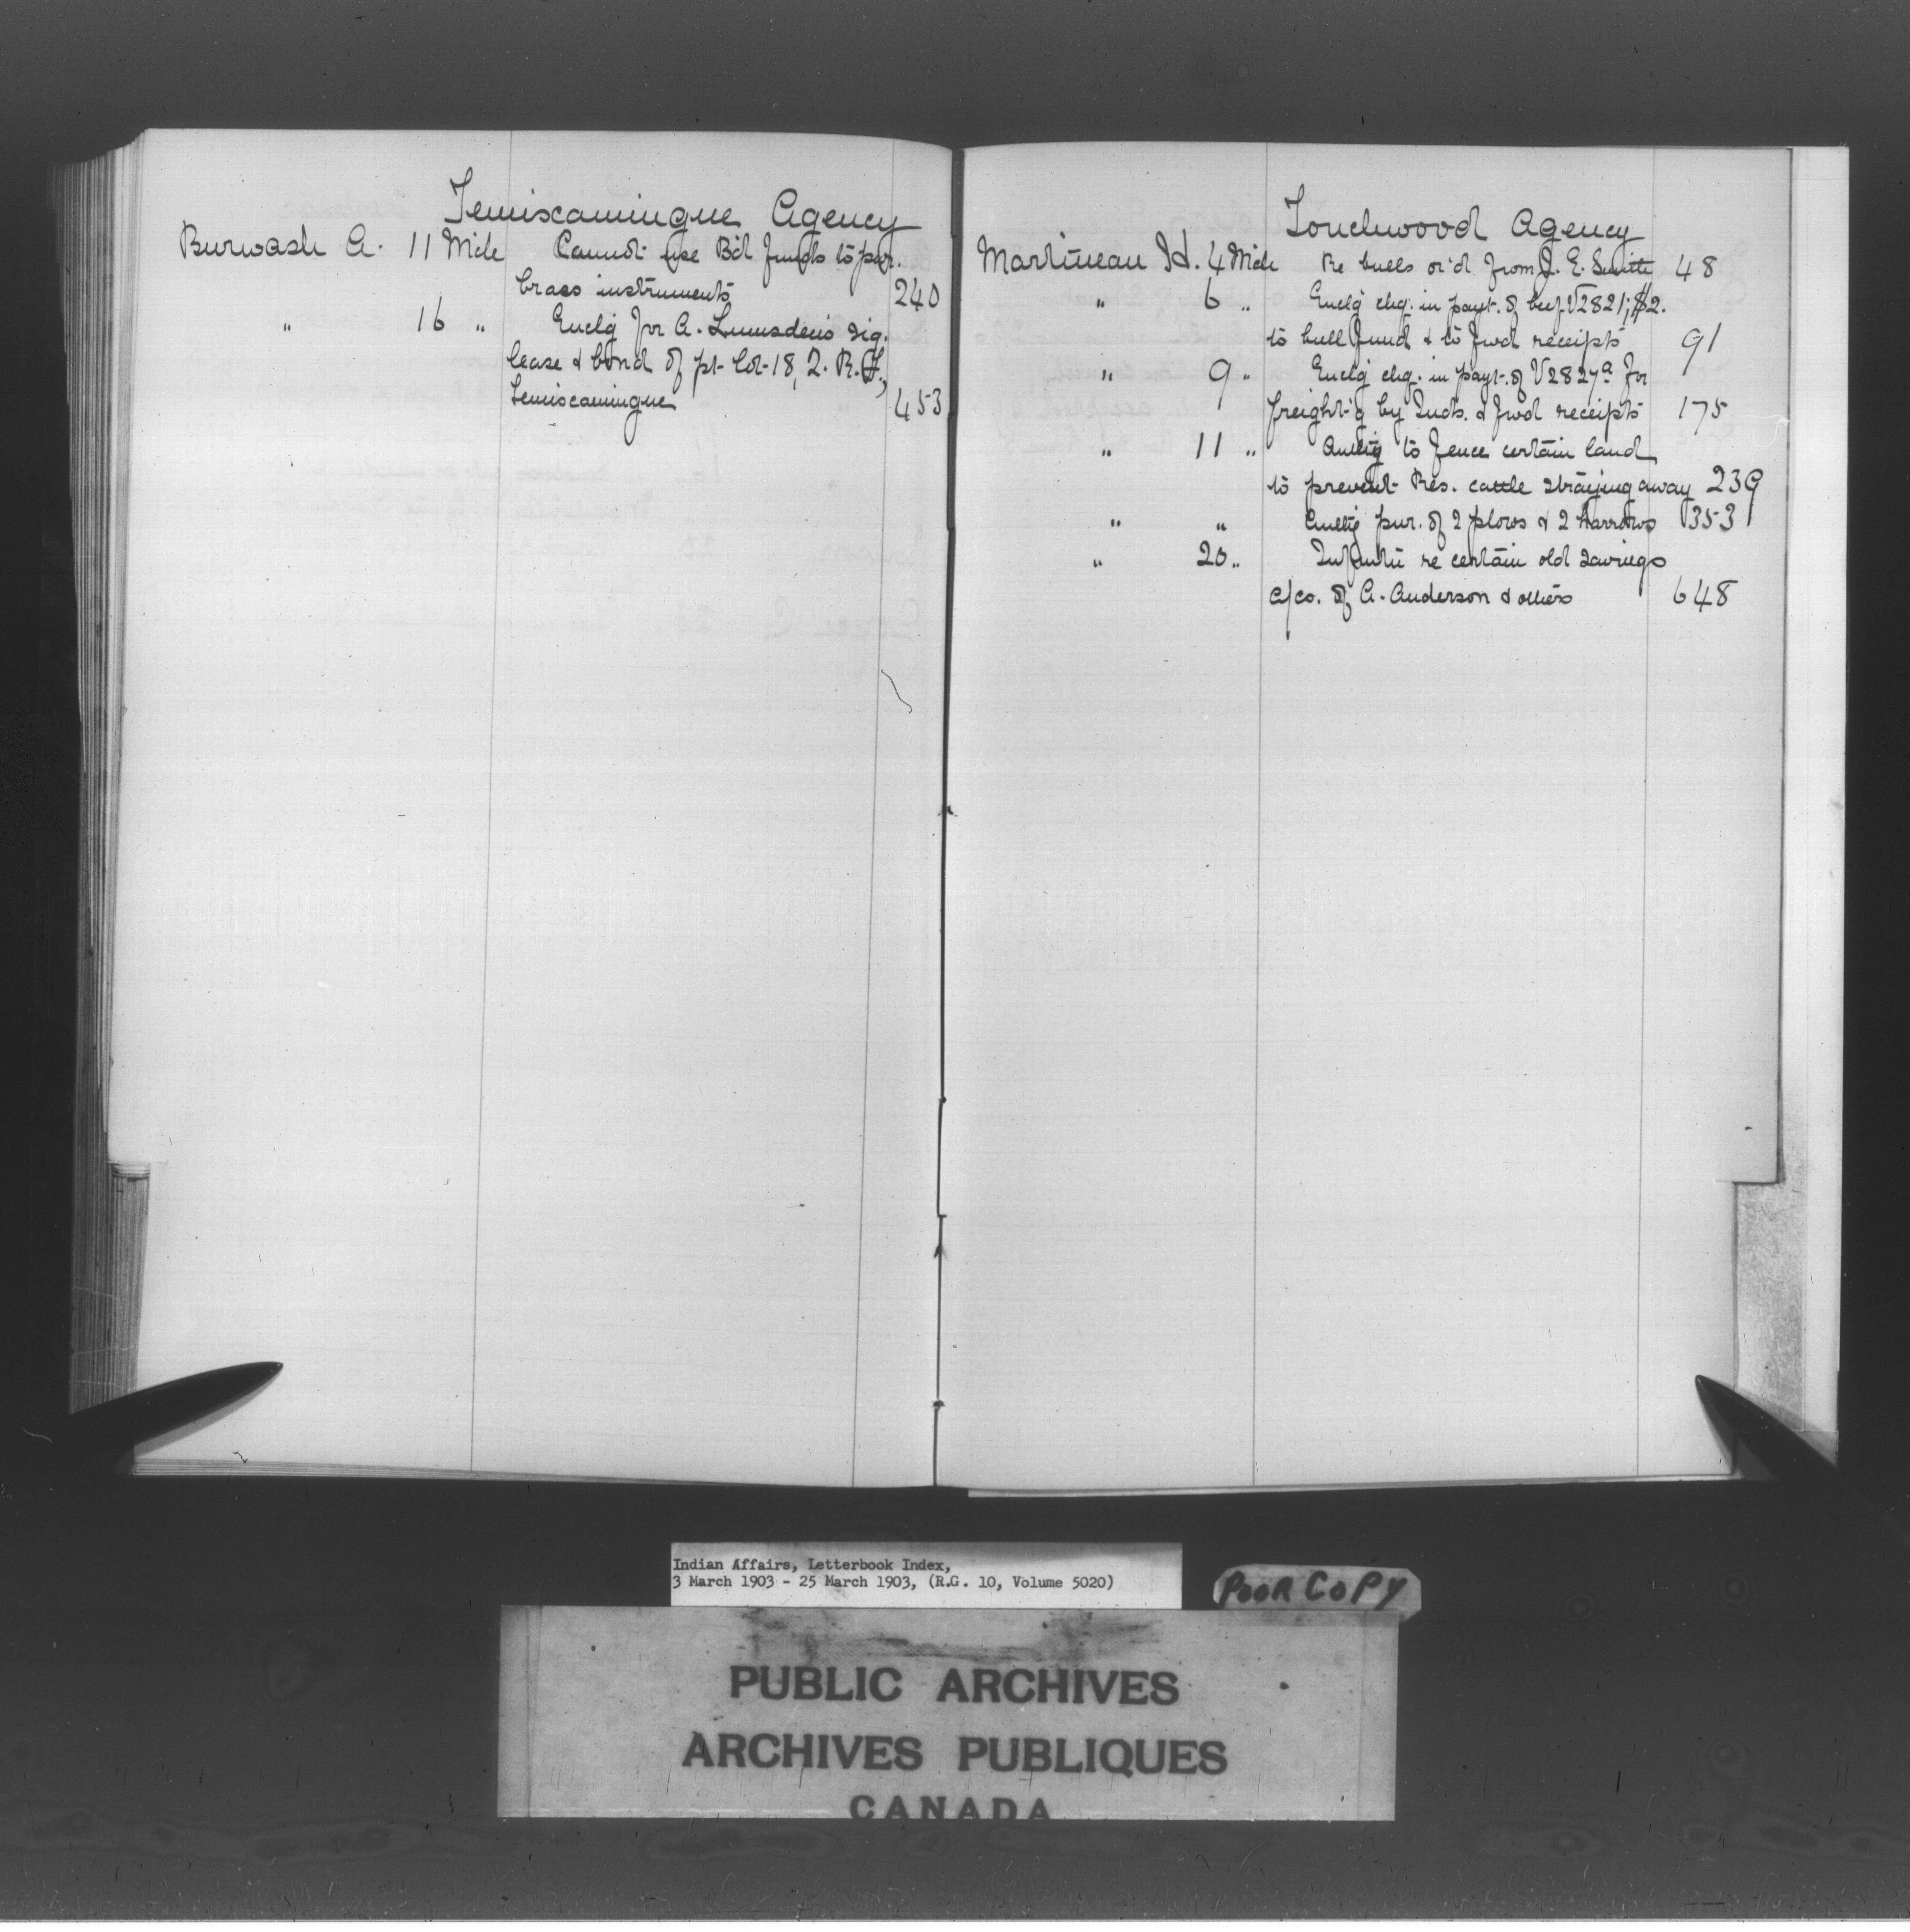 Temiscamingue Agency
Burwash A. 11 Mch Cannot use B'd funds to pur.
brass instruments 240
" 16 " Enclg for A. Lumsden's sig.
lease & bond of pt. Lot 18, 2. R.
Temiscamingue 453
Touchwood Agency
Martineau H. 4 Mch Re bulls or'd from J. E. Smith 48
" 6 " Enclg chq. in payt. of beef V2821; $2.
to bull fund & to fwd receipts 91
" 9 " Enclg chq. in payt. of V2827a for
freight'g by Inds. & fwd receipts 175
" 11 " Authg to fence certain land
to prevent Res. cattle straying away 239
" " Authg pur. of 2 plows & 2 harrows 353
" 20 " re certain old savings
a/cs. of A. Anderson & others 648
Indian Affairs, Letterbook Index,
3 March 1903 - 25 March 1903, (R.G. 10, Volume 5020)
POOR COPY
PUBLIC ARCHIVES
ARCHIVES PUBLIQUES
CANADA